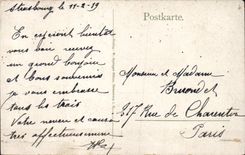 Strasbourg le 11-2-19
Postkarte.
En espérant bientôt
vous voir recevez
un grand bonjour
et bons souvenirs
je vous embrasse
tous les trois
Votre neveu et cousin
très affectueusement
Monsieur et Madame
217 Rue de Charenton
Paris